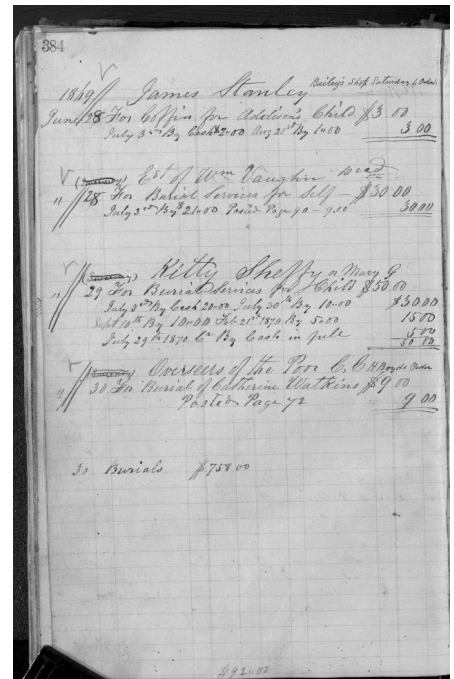 384
James Stanley Bailey's Shop Saturday & Order
1869
June 28 For Coffin for Addison's Child $3 00
July 3rd By Cash 2.00 Aug 21st By 1.00 3 00
Est of Wm Vaughn dead
" 28 For Burial Services for Self — $30.00
July 3rd By 21.00 Posted Page 90 - 9.00 30.00
Kitty Sheffy or Mary G
" 29 For Burial Services for Child $50.00
July 3rd By Cash 20.00 July 30th By 10.00 $30.00
Sept 10th By 10.00 Feb 21st 1870 By 5.00 15.00
July 29th 1870 By Cash in full 5.00
50 00
Overseers of the Poor C. C. H Boyds Order
" 30 For Burial of Catherine Watkins $9 00
Posted Page 72 9 00
30 Burials $758.00
492.00